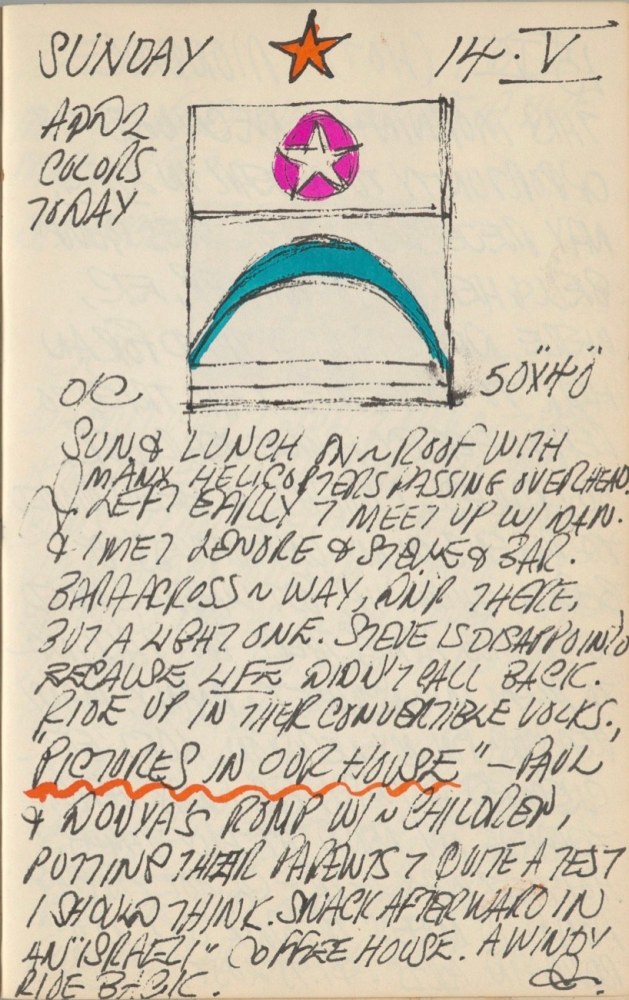 SUNDAY 14·V
ADD 2
COLORS
TODAY
O/C 50"X40"
SUN & LUNCH ON ~ ROOF WITH
MANY HELICOPTERS PASSING OVERHEAD.
LEFT EARLY T MEET UP W/
& I MET LENORE & STEVE & BAR.
BAR ACROSS ~ WAY, DNR THERE,
BUT A LIGHT ONE. STEVE IS DISAPPOINTD
BECAUSE LIFE DIDN'T CALL BACK.
RIDE UP IN THEIR CONVERTIBLE VOLKS.,
"PICTURES IN OUR HOUSE" — PAUL
& DONYA'S ROMP W/ ~ CHILDREN,
PUTTING THEIR PARENTS T QUITE A TEST
I SHOULD THINK. SNACK AFTERWARD IN
AN "ISRAELI" COFFEE HOUSE. A WINDY
RIDE BACK.